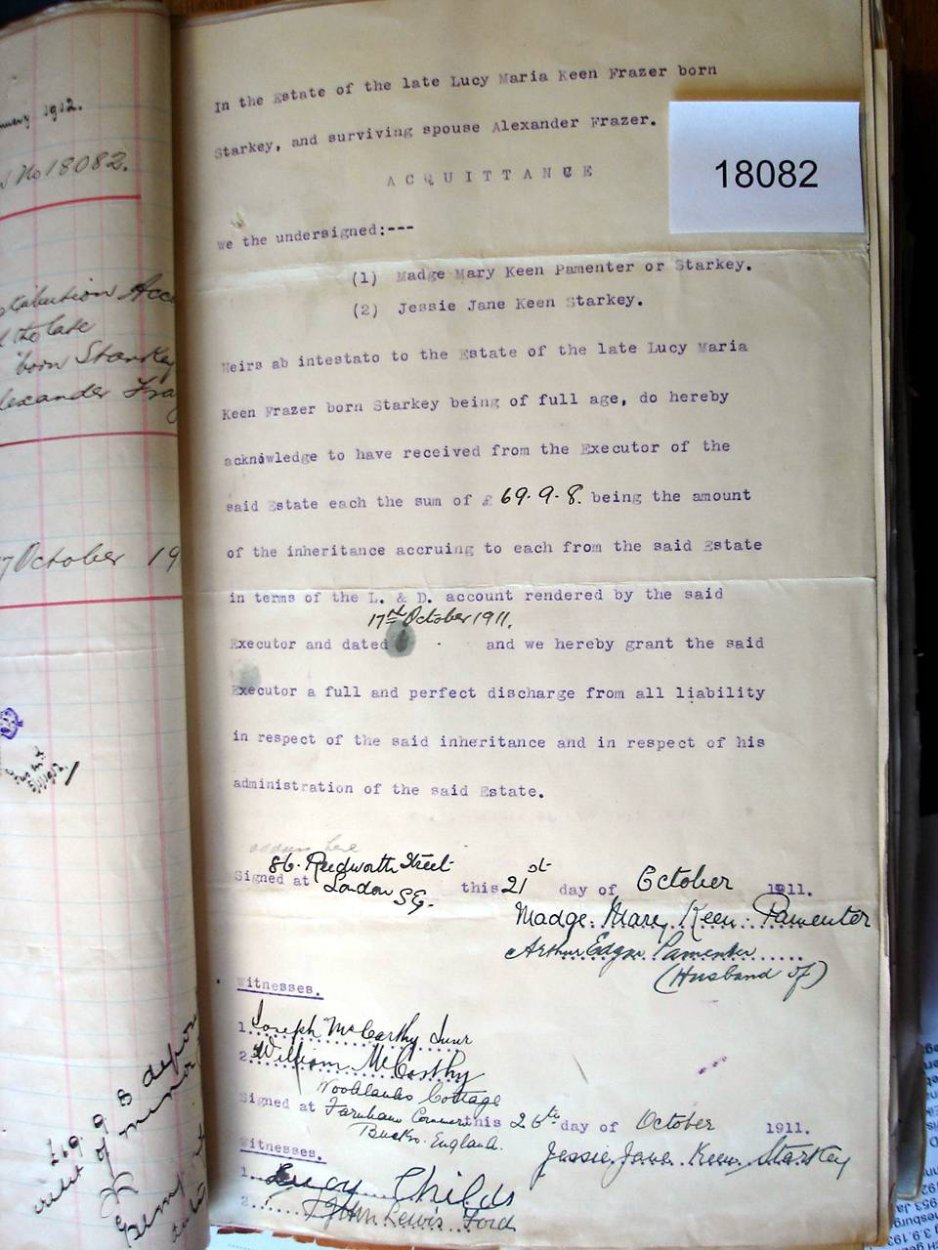 In the Estate of the late Lucy Maria Keen Frazer born
Starkey, and surviving spouse Alexander Frazer.
ACQUITTANCE
18082
We the undersigned:---
(1) Madge Mary Keen Pamenter or Starkey.
(2) Jessie Jane Keen Starkey.
Heirs ab intestato to the Estate of the late Lucy Maria
Keen Frazer born Starkey being of full age, do hereby
acknowledge to have received from the Executor of the
said Estate each the sum of £ 69.9.8. being the amount
of the inheritance accruing to each from the said Estate
in terms of the L. & D. account rendered by the said
17th October 1911.
Executor and dated and we hereby grant the said
Executor a full and perfect discharge from all liability
in respect of the said inheritance and in respect of his
administration of the said Estate.
address here
86. Street
Signed at London S.E. this 21st day of October 1911.
Madge Mary Keen Pamenter
Arthur Edgar Pamenter
(Husband of)
Witnesses.
1. Joseph McCarthy Junr
2. William McCarthy
Cottage
Signed at Farnham Common this 26th day of October 1911.
Bucks. England.
Jessie Jane Keen Starkey
Witnesses.
1. Lucy Childs
2. John Lewis Ford
1912.
No 18082.
the late
born Starkey
7 October 19
£69. 9. 8
of minor